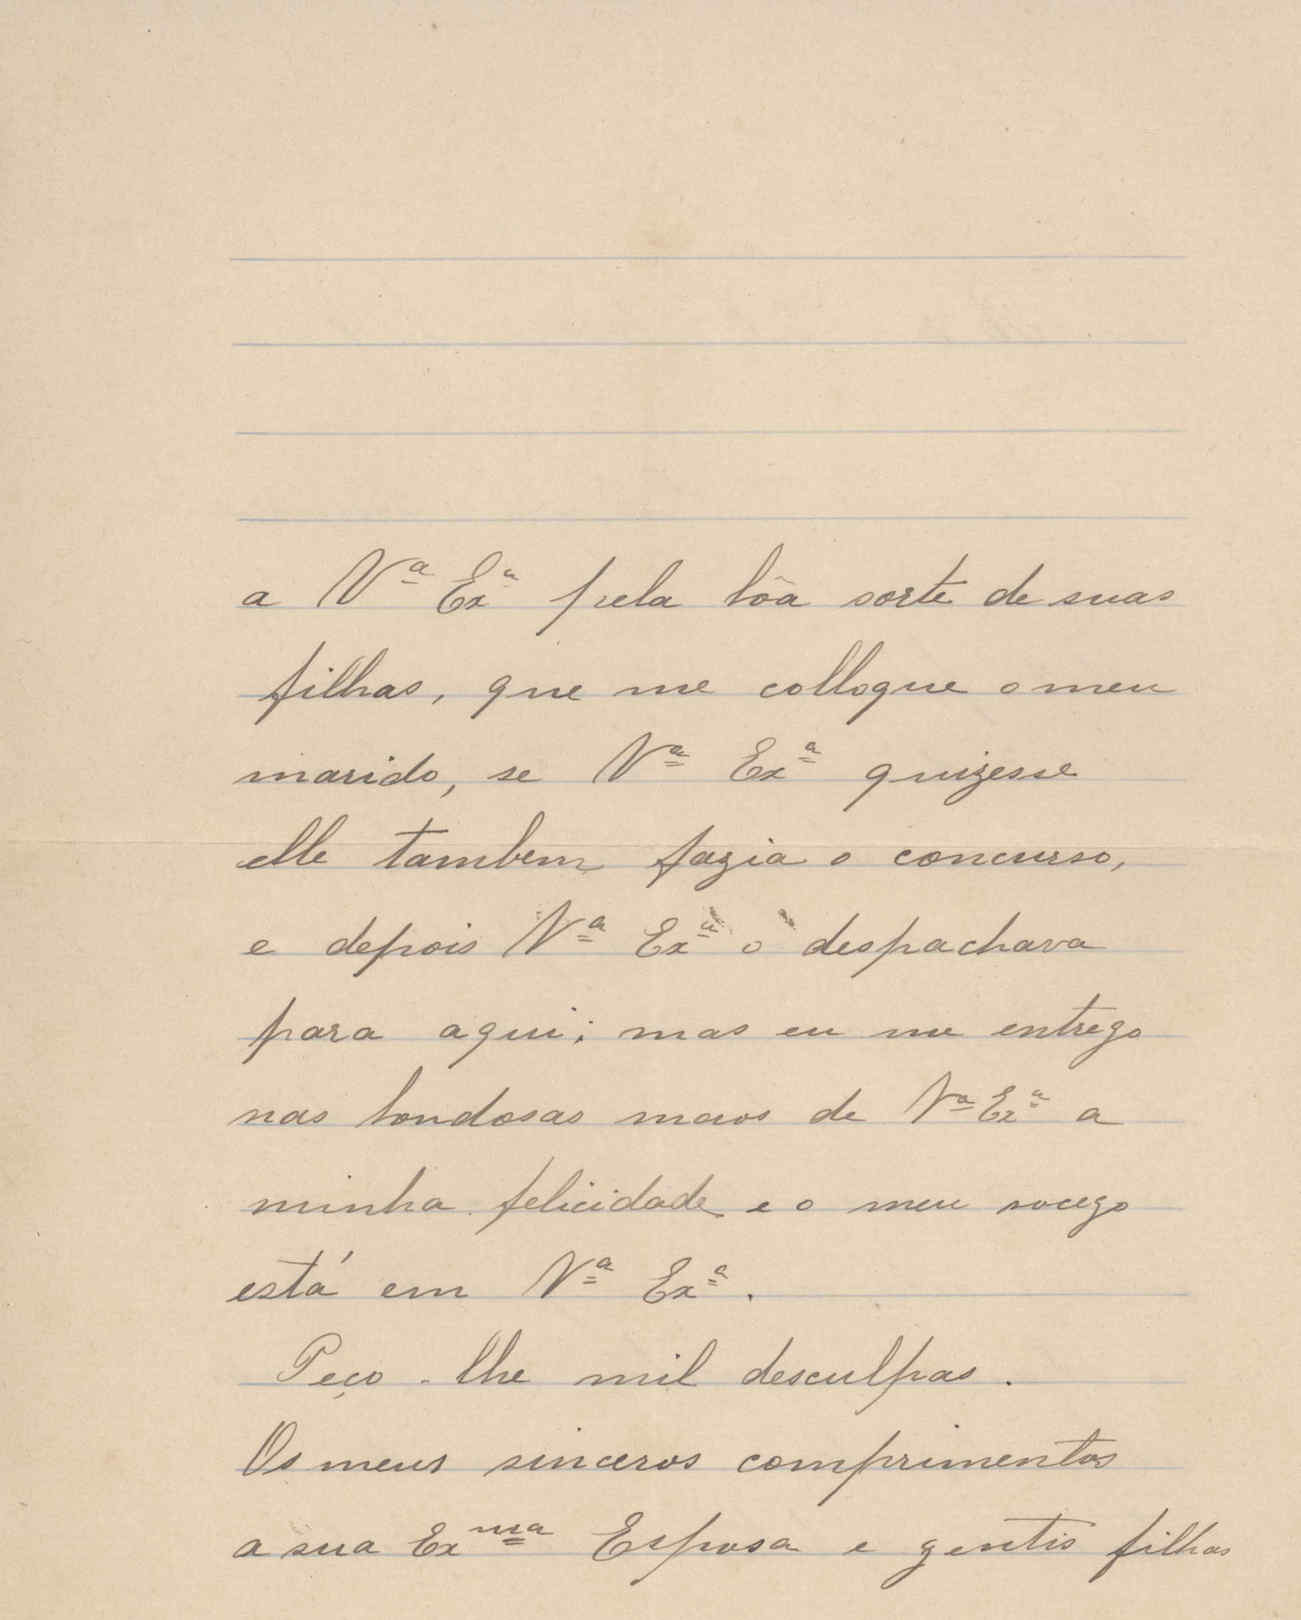 a Vª Exª pela bôa sorte de suas
filhas, que me colloque o meu
marido, se Vª Exª quizesse
elle tambem fazia o concurso,
e depois Vª Exª o despachava
para aqui; mas eu me entrego
nas bondosas maos de Vª Exª a
minha felicidade e o meu socego
está em Vª Exª.
Peço-lhe mil desculpas.
Os meus sinceros comprimentos
a sua Exᵐᵃ Esposa e gentis filhas